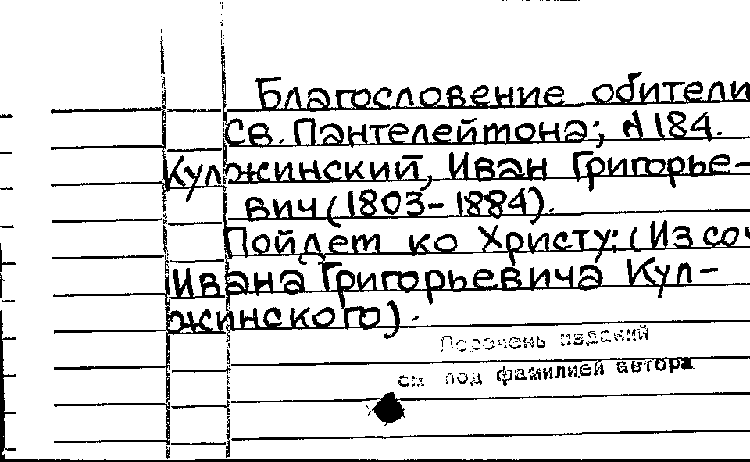 Благословение обители
Св. Пантелеймона; № 184.
Кулжинский, Иван Григорье-
вич (1803-1884).
Пойдем ко Христу: (Из соч
Ивана Григорьевича Кул-
жинского).
Перечень изданий
см под фамилией автора